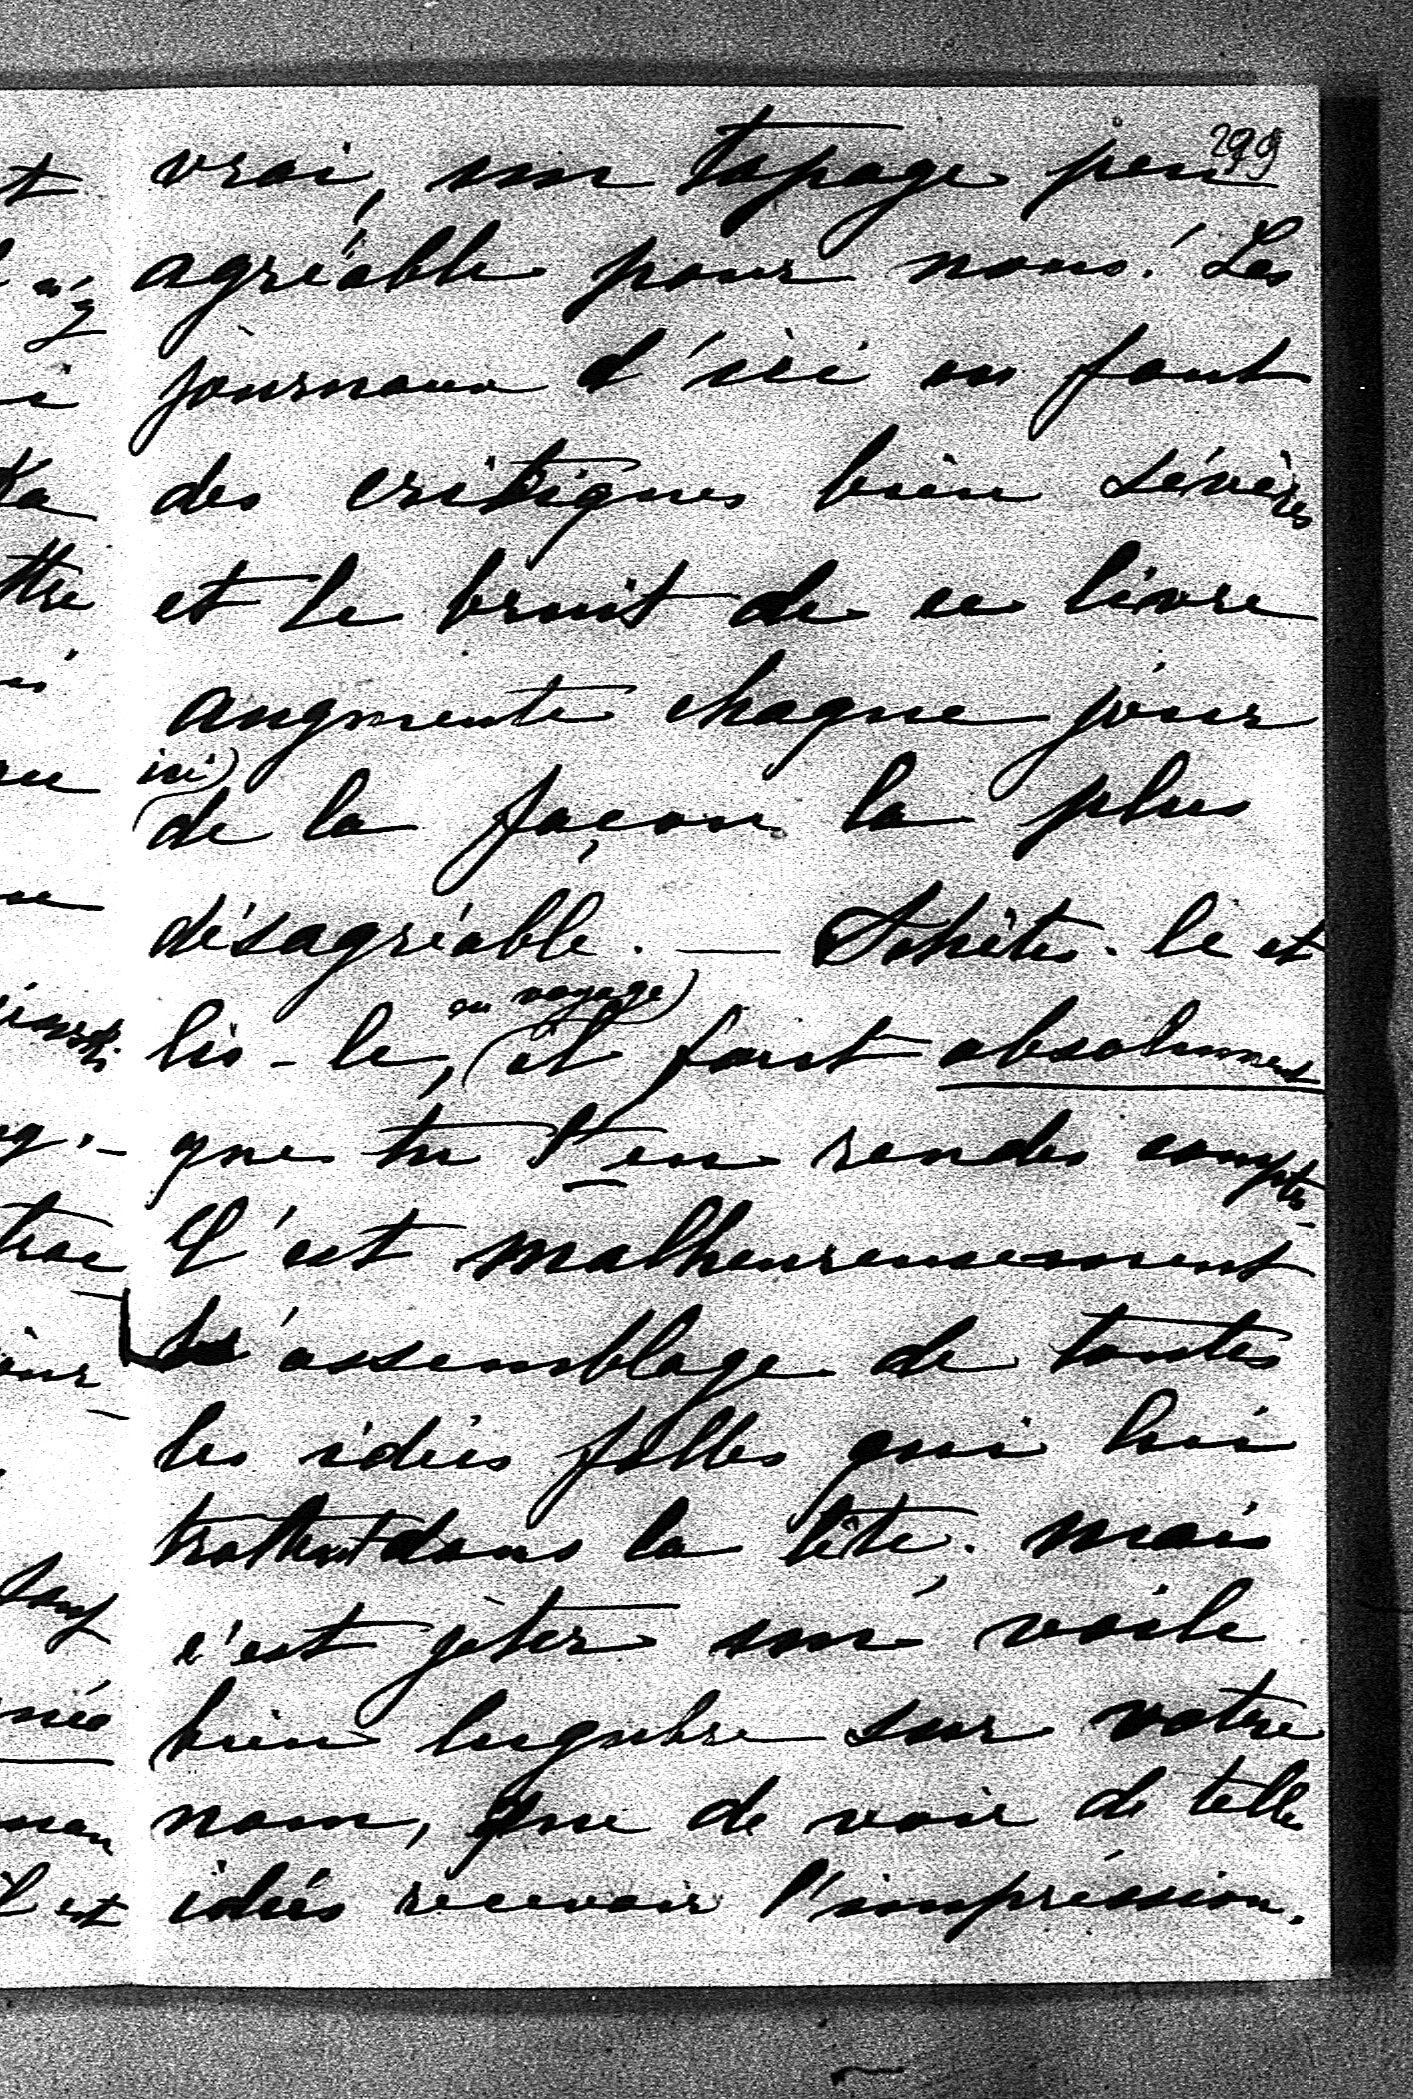 299
vrai, un tapage peu
agréable pour nous! Les
journaux d'ici en font
des critiques bien sévères
et le bruit de ce livre
augmente chaque jour
ici
de la façon la plus
désagréable. — Achètes-le et
en voyage
lis-le, il faut absolument
que tu t'en rendes compte.
C'est malheureusement
l'assemblage de toutes
les idées folles qui lui
trottent dans la tête. Mais
c'est jeter un voile
bien lugubre sur votre
nom, que de voir de telles
idées recevoir l'impréssion.